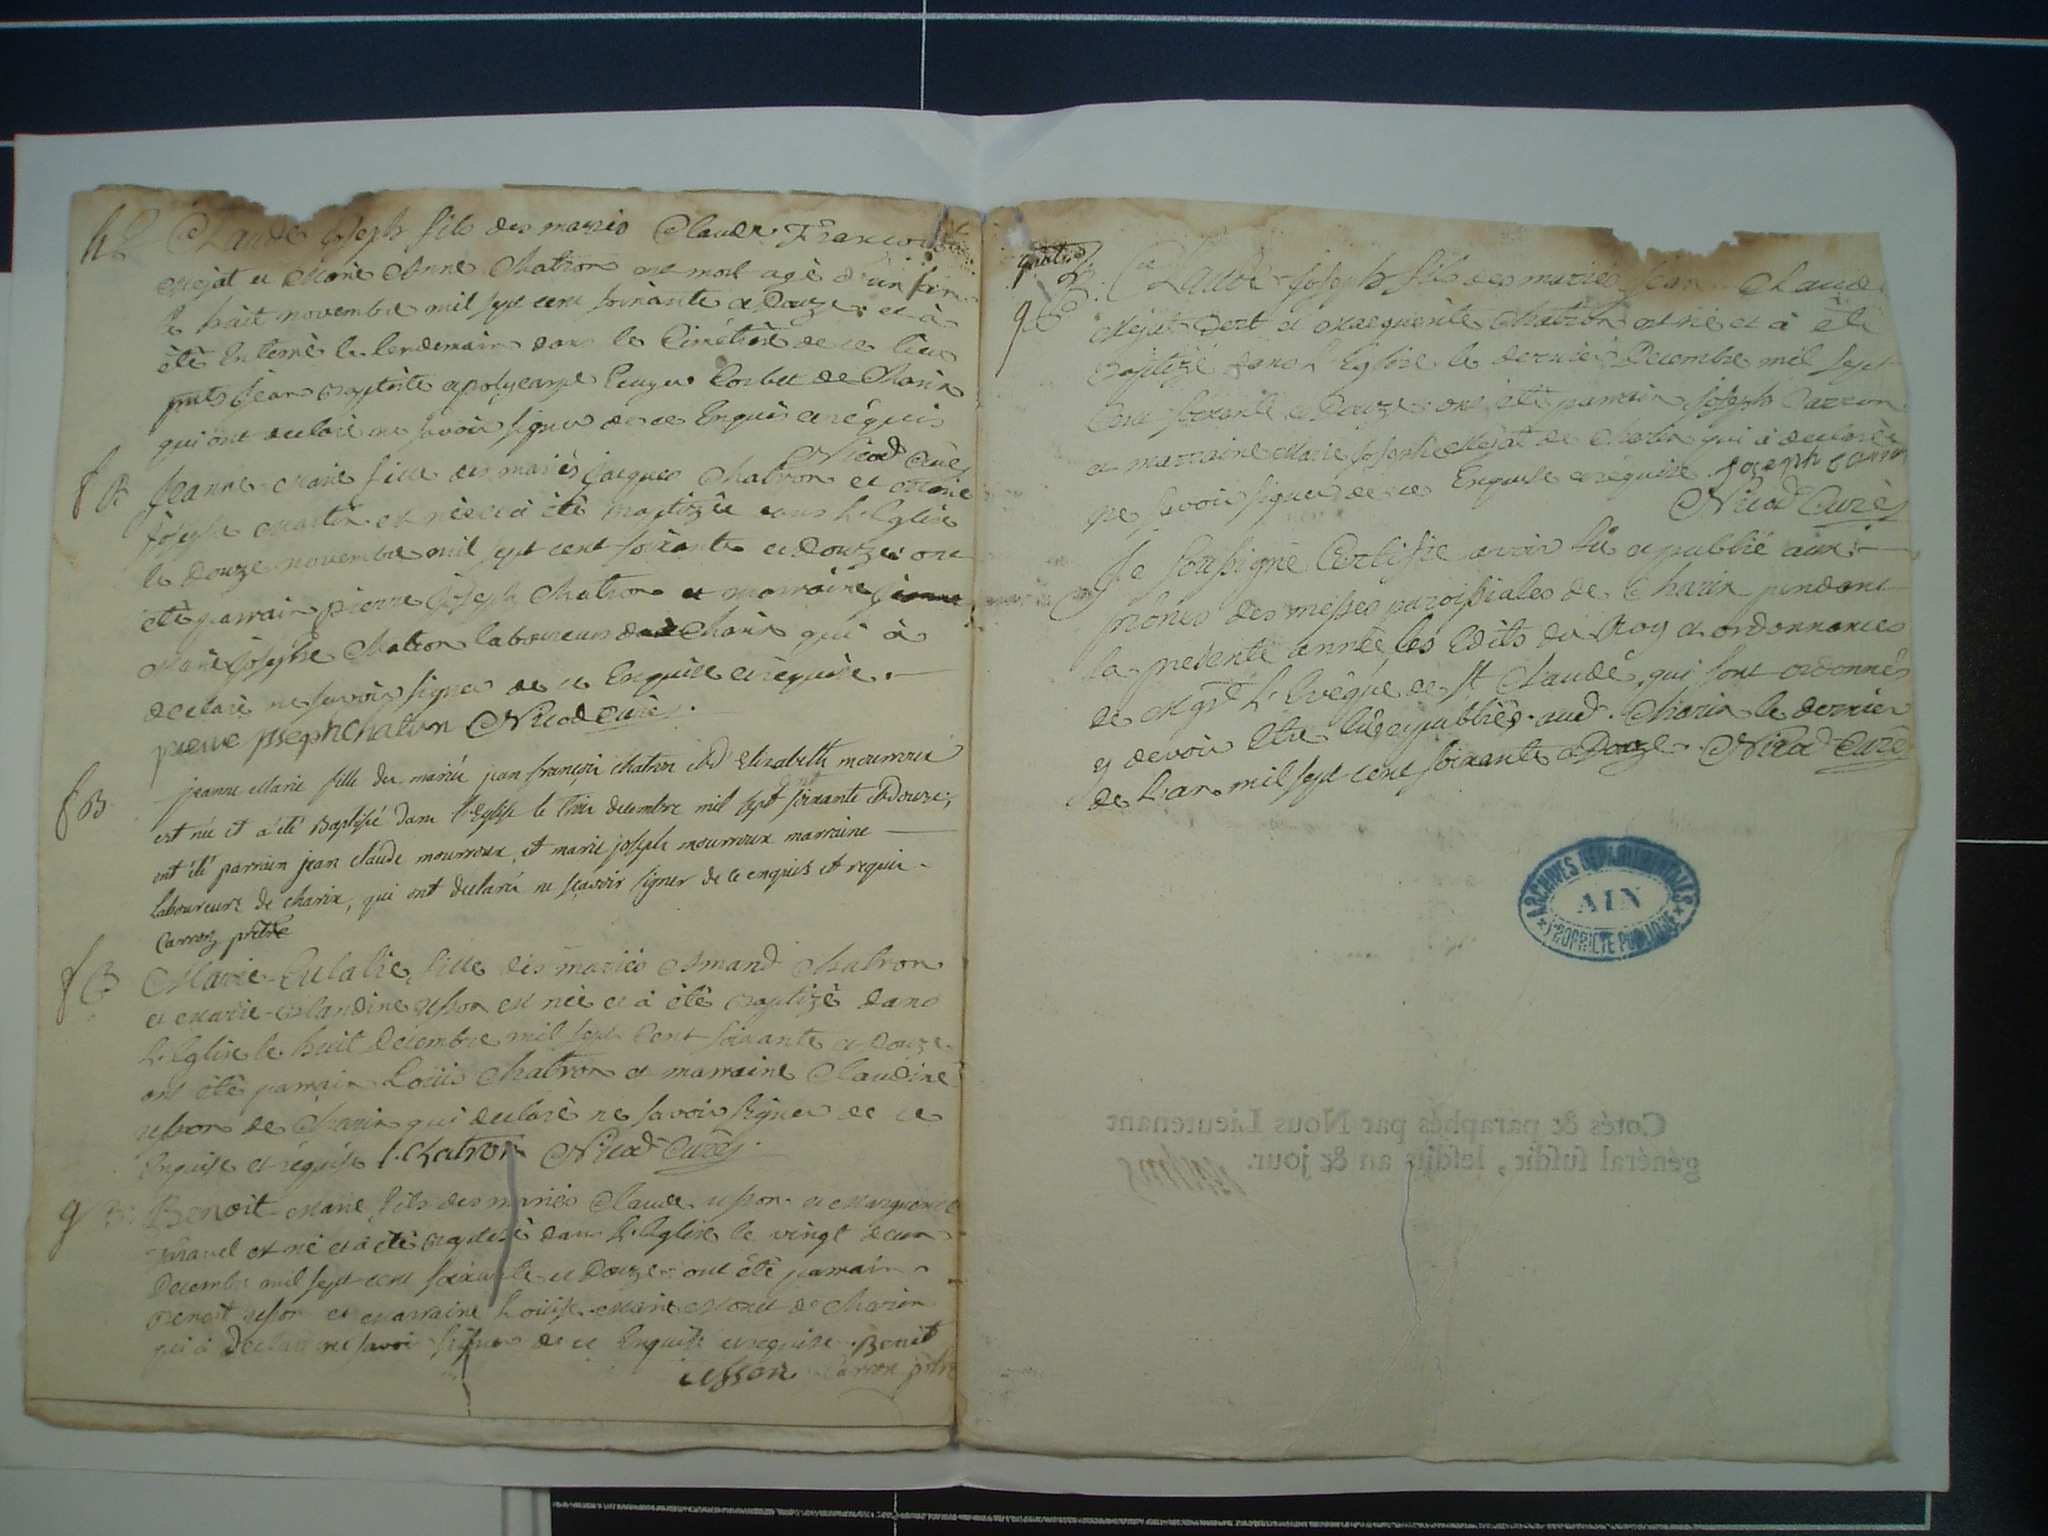 Claude Joseph fils des mariés Claude François
Mejat et Marie Anne Chatron est mort agé d'un
le huit novembre mil sept cent soixante et Douze et à
été Enterré le lendemain dans le Cimétière de ce lieu
Jean Baptiste de Charix
qui ont declaré ne savoir signer de ce Enquis et réquis
Nicod Curé
B Jeanne-Marie fille des mariés Jacques Chatron et Marie
Joseph Martin est née et à été Baptizée dans L'Eglise
le Douze novembre mil sept cent soixante et Douze ont
été parrain pierre Joseph Chatron et marraine
Marie Josephe Chatron laboureurs de Charix qui à
declaré ne savoir signer de ce Enquise et requise.
pierre joseph Chatron Nicod Curé.
B jeanne Marie fille des mariés jean françois chatron et d'Elizabeth mourroux
est née et a été Baptisée dans l'Eglise le trois decembre mil sept cent soixante et douze,
ont été parrain jean claude mourroux, et marie joseph mourroux marraine
Laboureurs de charix, qui ont declaré ne sçavoir signer de ce enquis et requis
Carron prêtre
B Marie-Eulalie fille des mariés Amand Chatron
et Marie-Claudine usson est née et à été Baptizé dans
L'Eglise le huit Décembre mil sept Cent soixante et Douze
ont été parrain Loüis Chatron et marraine Claudine
usson de Charix qui declaré ne savoir signer de ce
Enquise et requise l. Chatron Nicod Curé
B Benoit-Marie fils des mariés Claude usson et Marguerite
est né et à été Baptizé dans L'Eglise le vingt
Decembre mil sept cent soixante et Douze ont été parrain
Benoit usson et Marraine Loüise-Marie de Charix
qui à Declaré ne savoir signer de ce Enquise et requise. Benoit
usson Carron prêtre
Claude-Joseph fils des mariés Jean Claude
Mejat et Marguerite Chatron est né et à été
Baptizé dans L'Eglise le dernier Decembre mil sept
Cent soixante et Douze ont été parrain Joseph Carron
et marraine Marie Joseph Mejat de Charix qui à declaré
ne savoir signer de ce Enquise et réquise. Joseph Carron
Nicod Curé
Je soussigné Certifie avoir lû et publié aux
prônes des messes paroissiales de Charix pendant
la présente année, les Edits du Roy et ordonnances
de Mgr L'Evêque de St Claude, qui sont ordonnés
y devoir être lûs et publiés. aud. Charix le dernier
de L'an mil sept cent soixante et Douze. Nicod Curé
ARCHIVES DEPARTEMENTALES
AIN
PROPRIETE PUBLIQUE
Cotés & paraphés par Nous Lieutenant
général susdit, lesdits an & jour.